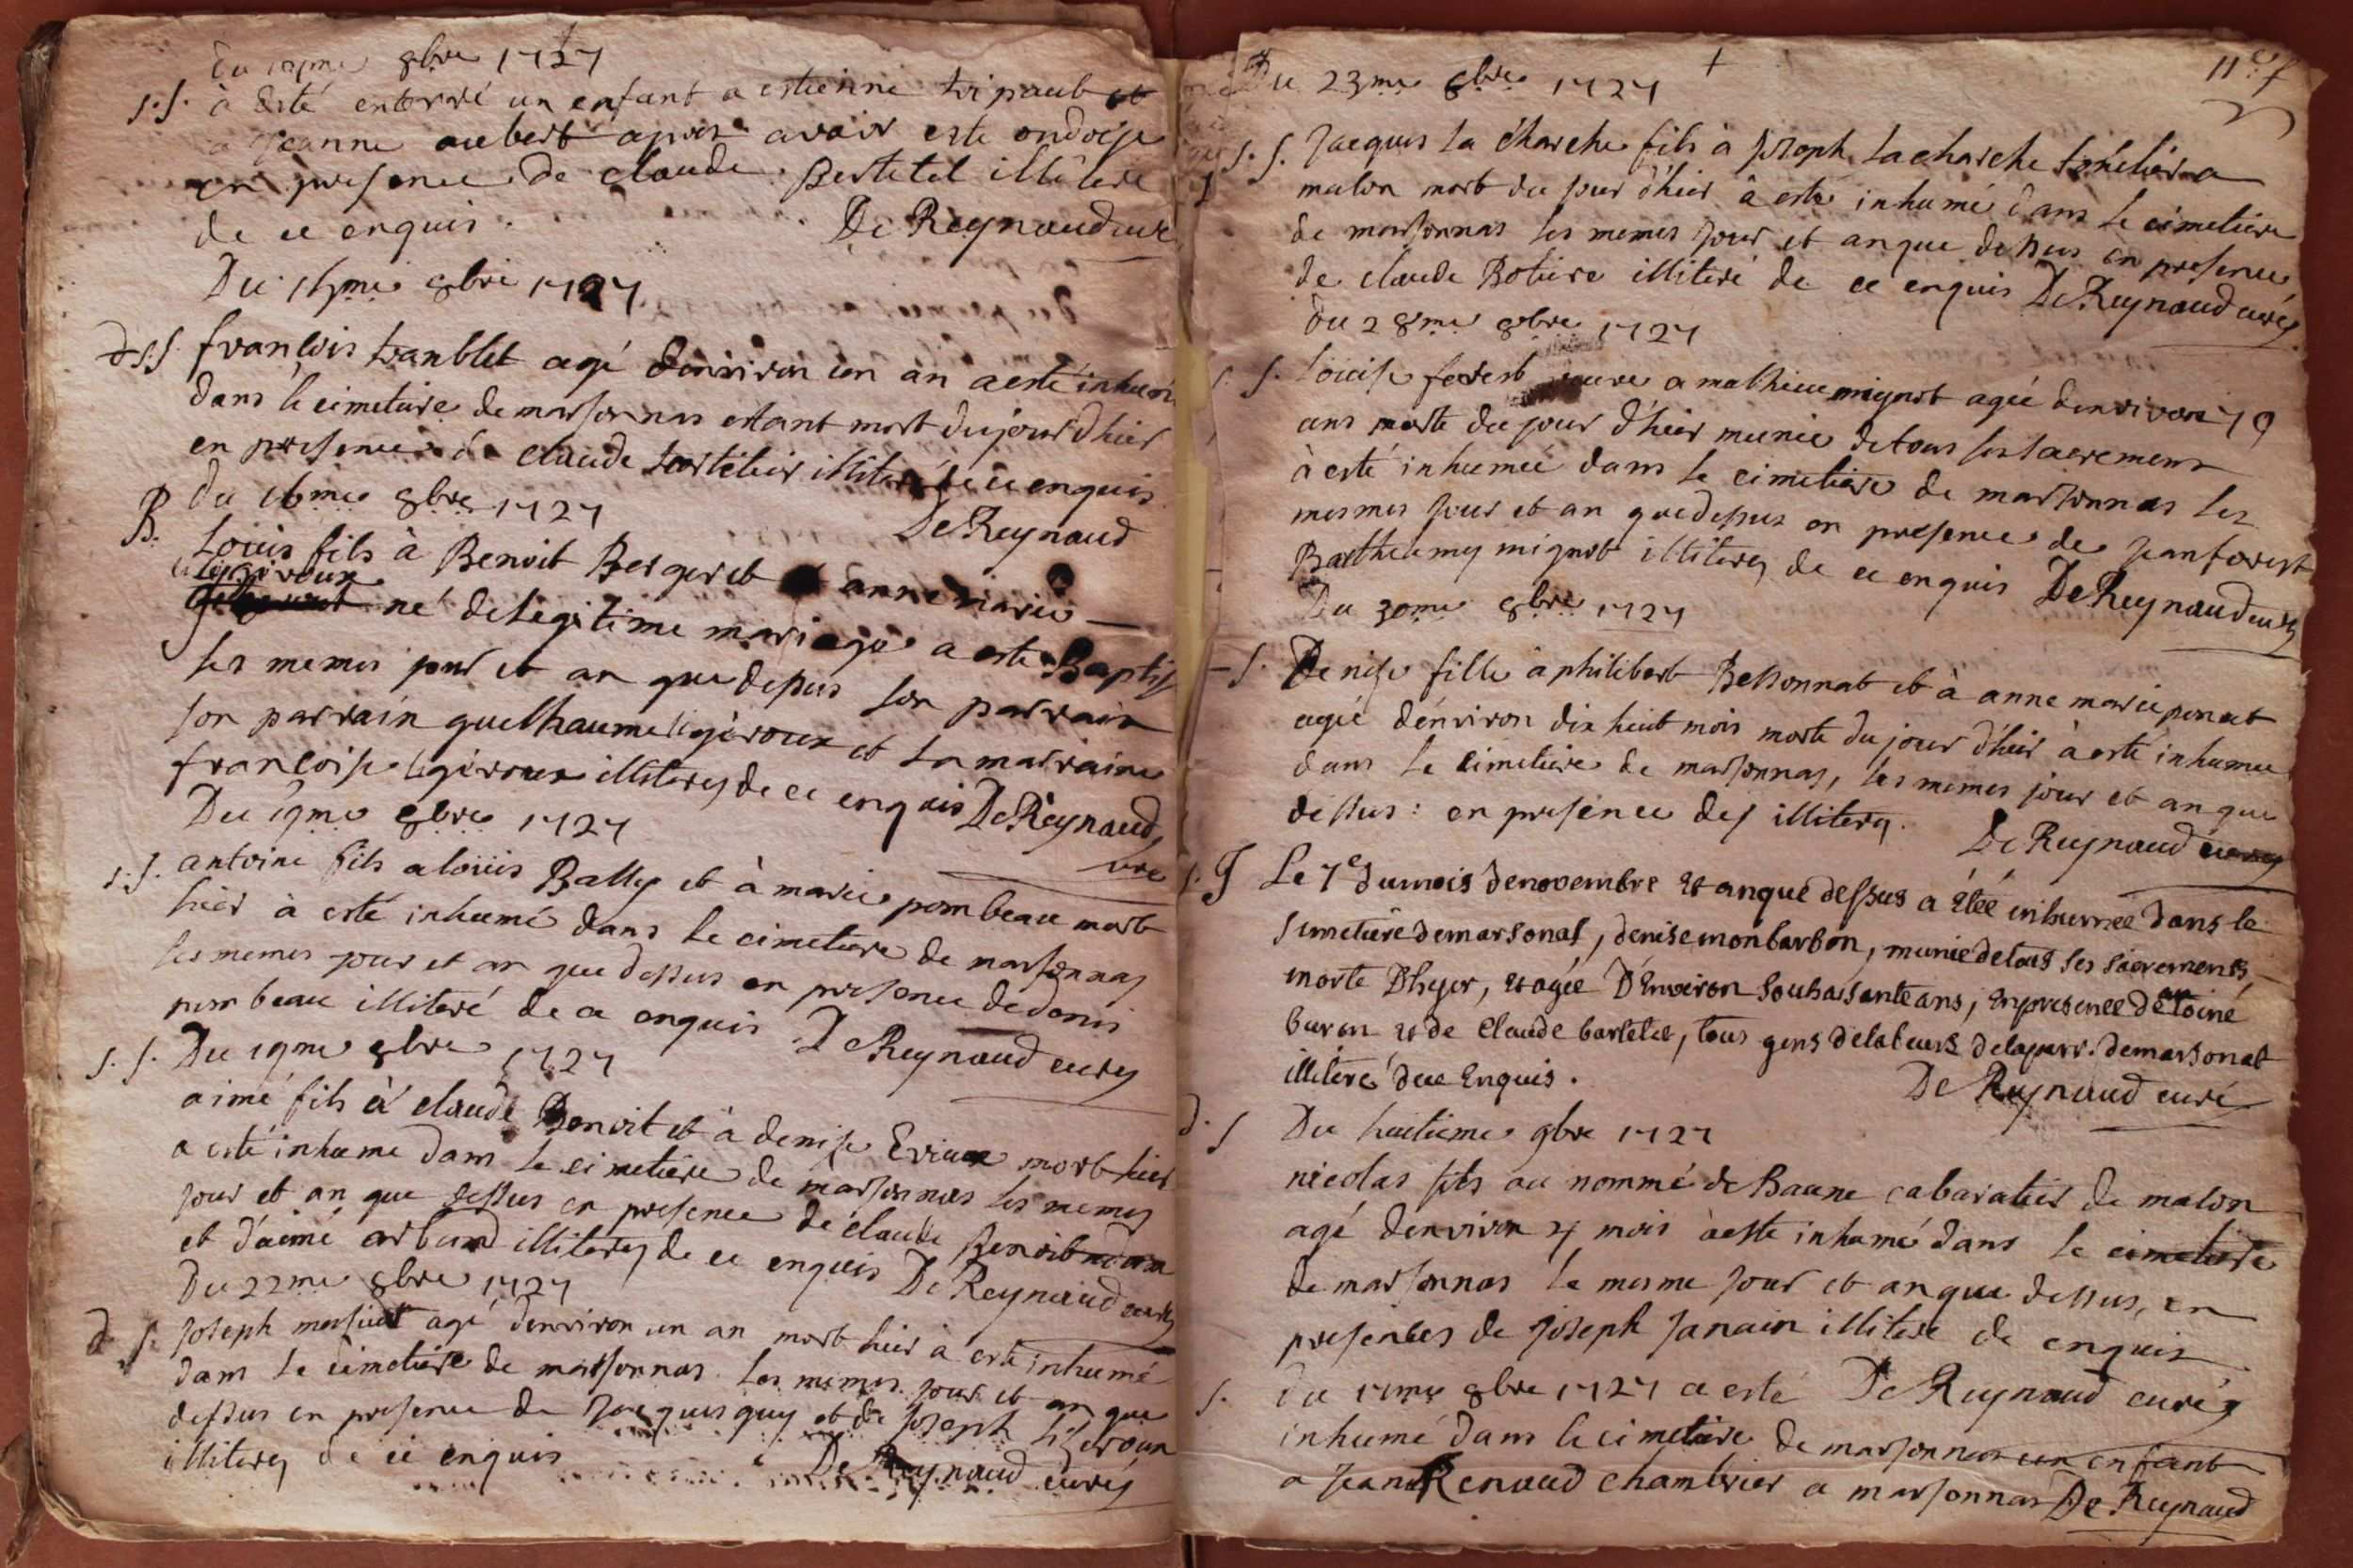 Du 8bre 1727
s.s. à esté enterré un enfant a estienne tripaut et
a jeanne aubert apres avoir esté ondoye
en presence de claude Bertetel illitere
de ce enquis. De Reynaud curé
Du 8bre 1727
s.s. françois tranblet agé denviron un an a esté inhumé
dans le cimetiere de marsonnas estant mort du jour dhier
en presence de claude illiteré de ce enquis
Du 16me 8bre 1727 De Reynaud
B. Loüis fils à Benoit Berger et anne marie
ligiroux né de legitime mariage a esté Baptisé
les memes jour et an que dessus son parrain
son parrain guelhaume ligiroux et la marraine
françoise ligiroux illiterez de ce enquis De Reynaud
Du 19me 8bre 1727 curé
s.s. antoine fils a loüis Bally et à marie pombeau mort
hier à esté inhumé dans le cimetiere de marsonnas
les memes jour et an que dessus en presence de denis
pombeau illiteré de ce enquis De Reynaud curez
s.s. Du 19me 8bre 1727
aimé fils à claude Benoit et à denise Eviaux mort hier
a esté inhumé dans le cimetiere de marsonnas les memes
jour et an que dessus en presence de claude Benoit
et d'aimé arband illiterez de ce enquis De Reynaud curez
Du 22me 8bre 1727
d. s. Joseph agé denviron un an mort hier à esté inhumé
dans le cimetiere de marsonnas les memes jour et an que
dessus en presence de Jacques guy et de Joseph ligeroux
illiterez de ce enquis De Reynaud curez
Du 23me 8bre 1727
s.s. Jacques la charche fils à Joseph la charche a
malon mort du jour d'hier à esté inhumé dans le cimetiere
de marsonnas les memes jour et an que dessus en presence
de claude illiteré de ce enquis De Reynaud curez
Du 28me 8bre 1727
s. Loüise forest veuve a mathieu mignot agée denviron 70
ans morte du jour d'hier munie de tous ses sacrements
à esté inhumée dans le cimetiere de marsonnas les
mesmes jour et an que dessus en presence de jean forest
Barthelemy mignot illiterez de ce enquis De Reynaud curez
Du 30me 8bre 1727
s. Denise fille à philibert Bessonnat et à anne marie
agée denviron dix huit mois morte du jour d'hier à esté inhumee
dans le cimetiere de marsonnas, les memes jour et an que
dessus: en presence des illiterez. De Reynaud curez
Le 7e du mois de novembre et an que dessus a étée inhumée dans le
simetiere de marsonas, denise monbarbon, munie de tous ses sacrements,
morte Dhyer, et agée D'Environ souhasante ans, en presence de antoine
buron et de Claude bartelet, tous gens de labeurs de la parr. de marsonat
illiteré de ce Enquis. De Reynaud curé
d. s Du huitieme 9bre 1727
nicolas fils au nommé de Baune cabaratier de malon
agé denviron 4 mois à esté inhumé dans le cimetiere
de marsonnas le mesme jour et an que dessus, en
presences de joseph Janain illiteré de enquis
s. Du 11me 9bre 1727 a esté De Reynaud curéz
inhumé dans le cimetiere de marsonnas un enfant
a jean Renaud chambrier a marsonnas De Reynaud